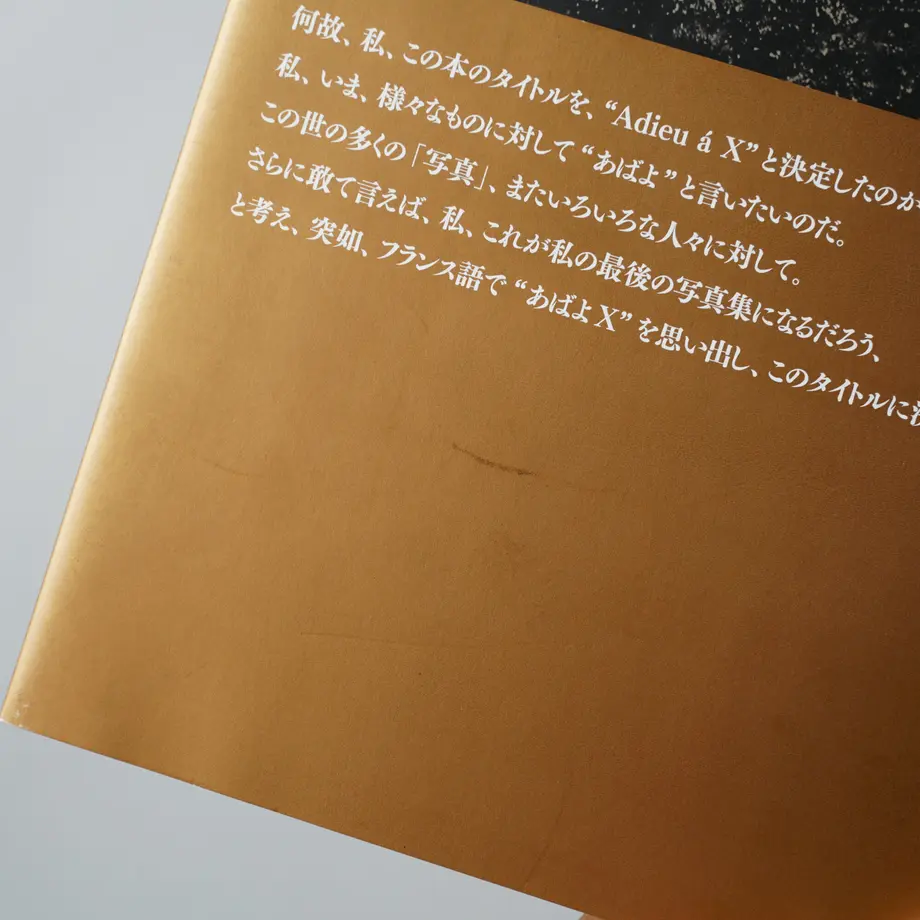 何故、私、この本のタイトルを、“Adieu á X”と決定したのか
私、いま、様々なものに対して“あばよ”と言いたいのだ。
この世の多くの「写真」、またいろいろな人々に対して。
さらに敢て言えば、私、これが私の最後の写真集になるだろう、
と考え、突如、フランス語で“あばよX”を思い出し、このタイトルに